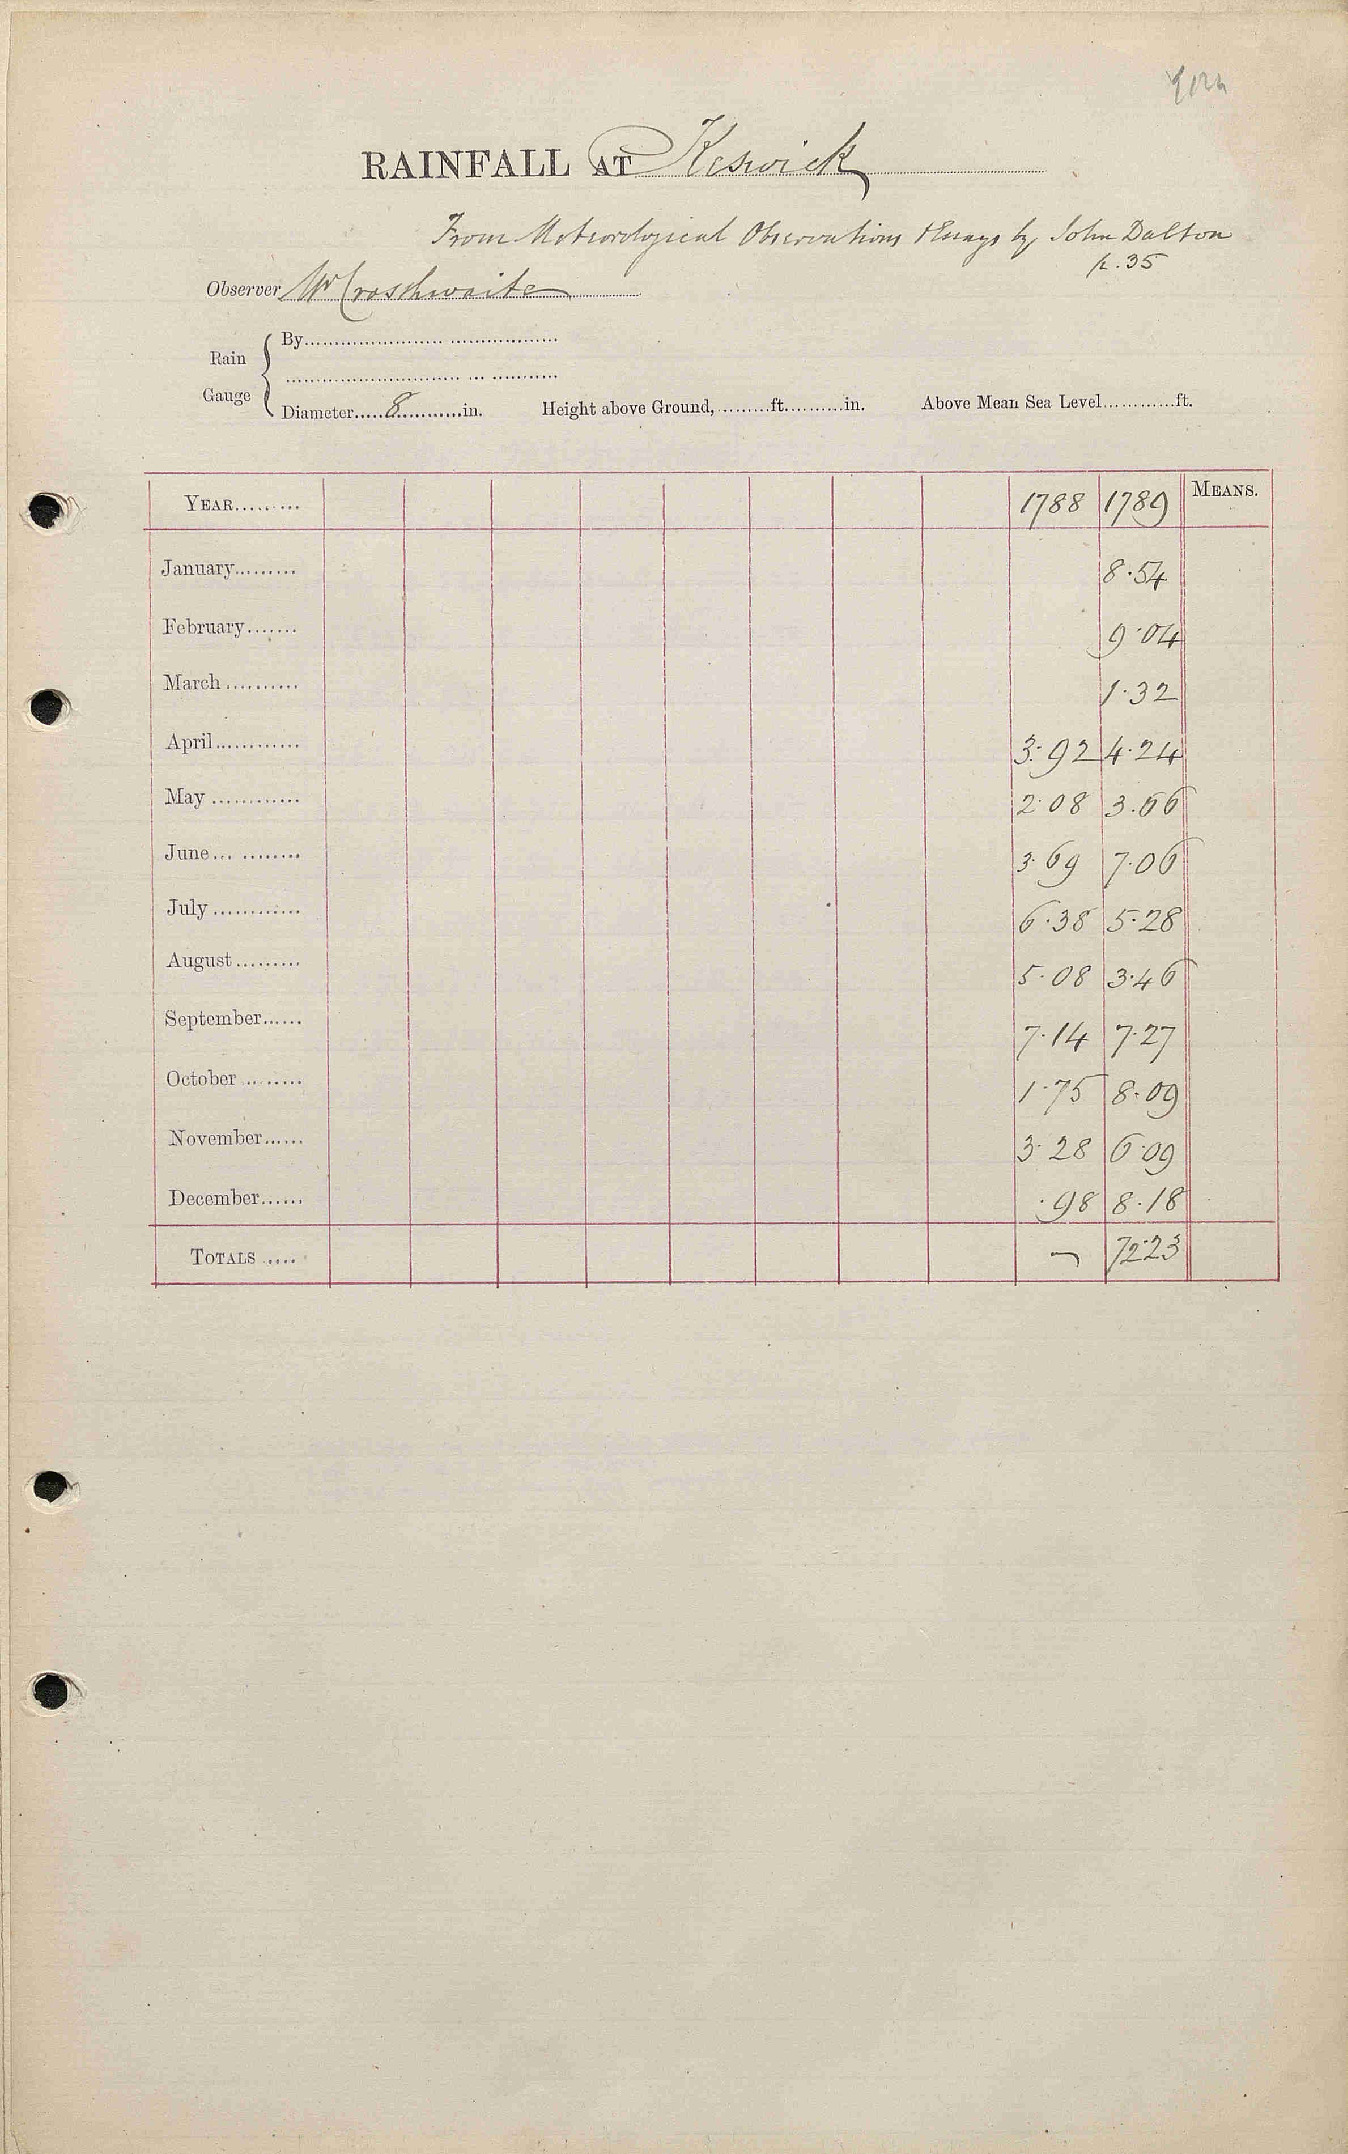 RAINFALL AT Keswick
From Meteorological Observations & Essays by John Dalton
p. 35
Observer Mr Crosthwaite
Rain Gauge
By
Diameter 8 in. Height above Ground, ft. in. Above Mean Sea Level ft.
YEAR 1788 1789 MEANS.
January 8.54
February 9.04
March 1.32
April 3.92 4.24
May 2.08 3.66
June 3.69 7.06
July 6.38 5.28
August 5.08 3.46
September 7.14 7.27
October 1.75 8.09
November 3.28 6.09
December .98 8.18
TOTALS — 72.23